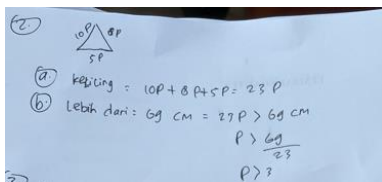 2.
10P 8P
5P
a. keliling = 10P + 8P + 5P = 23 P
b. Lebih dari : 69 cm = 23P > 69 cm
P > 69
23
P > 3